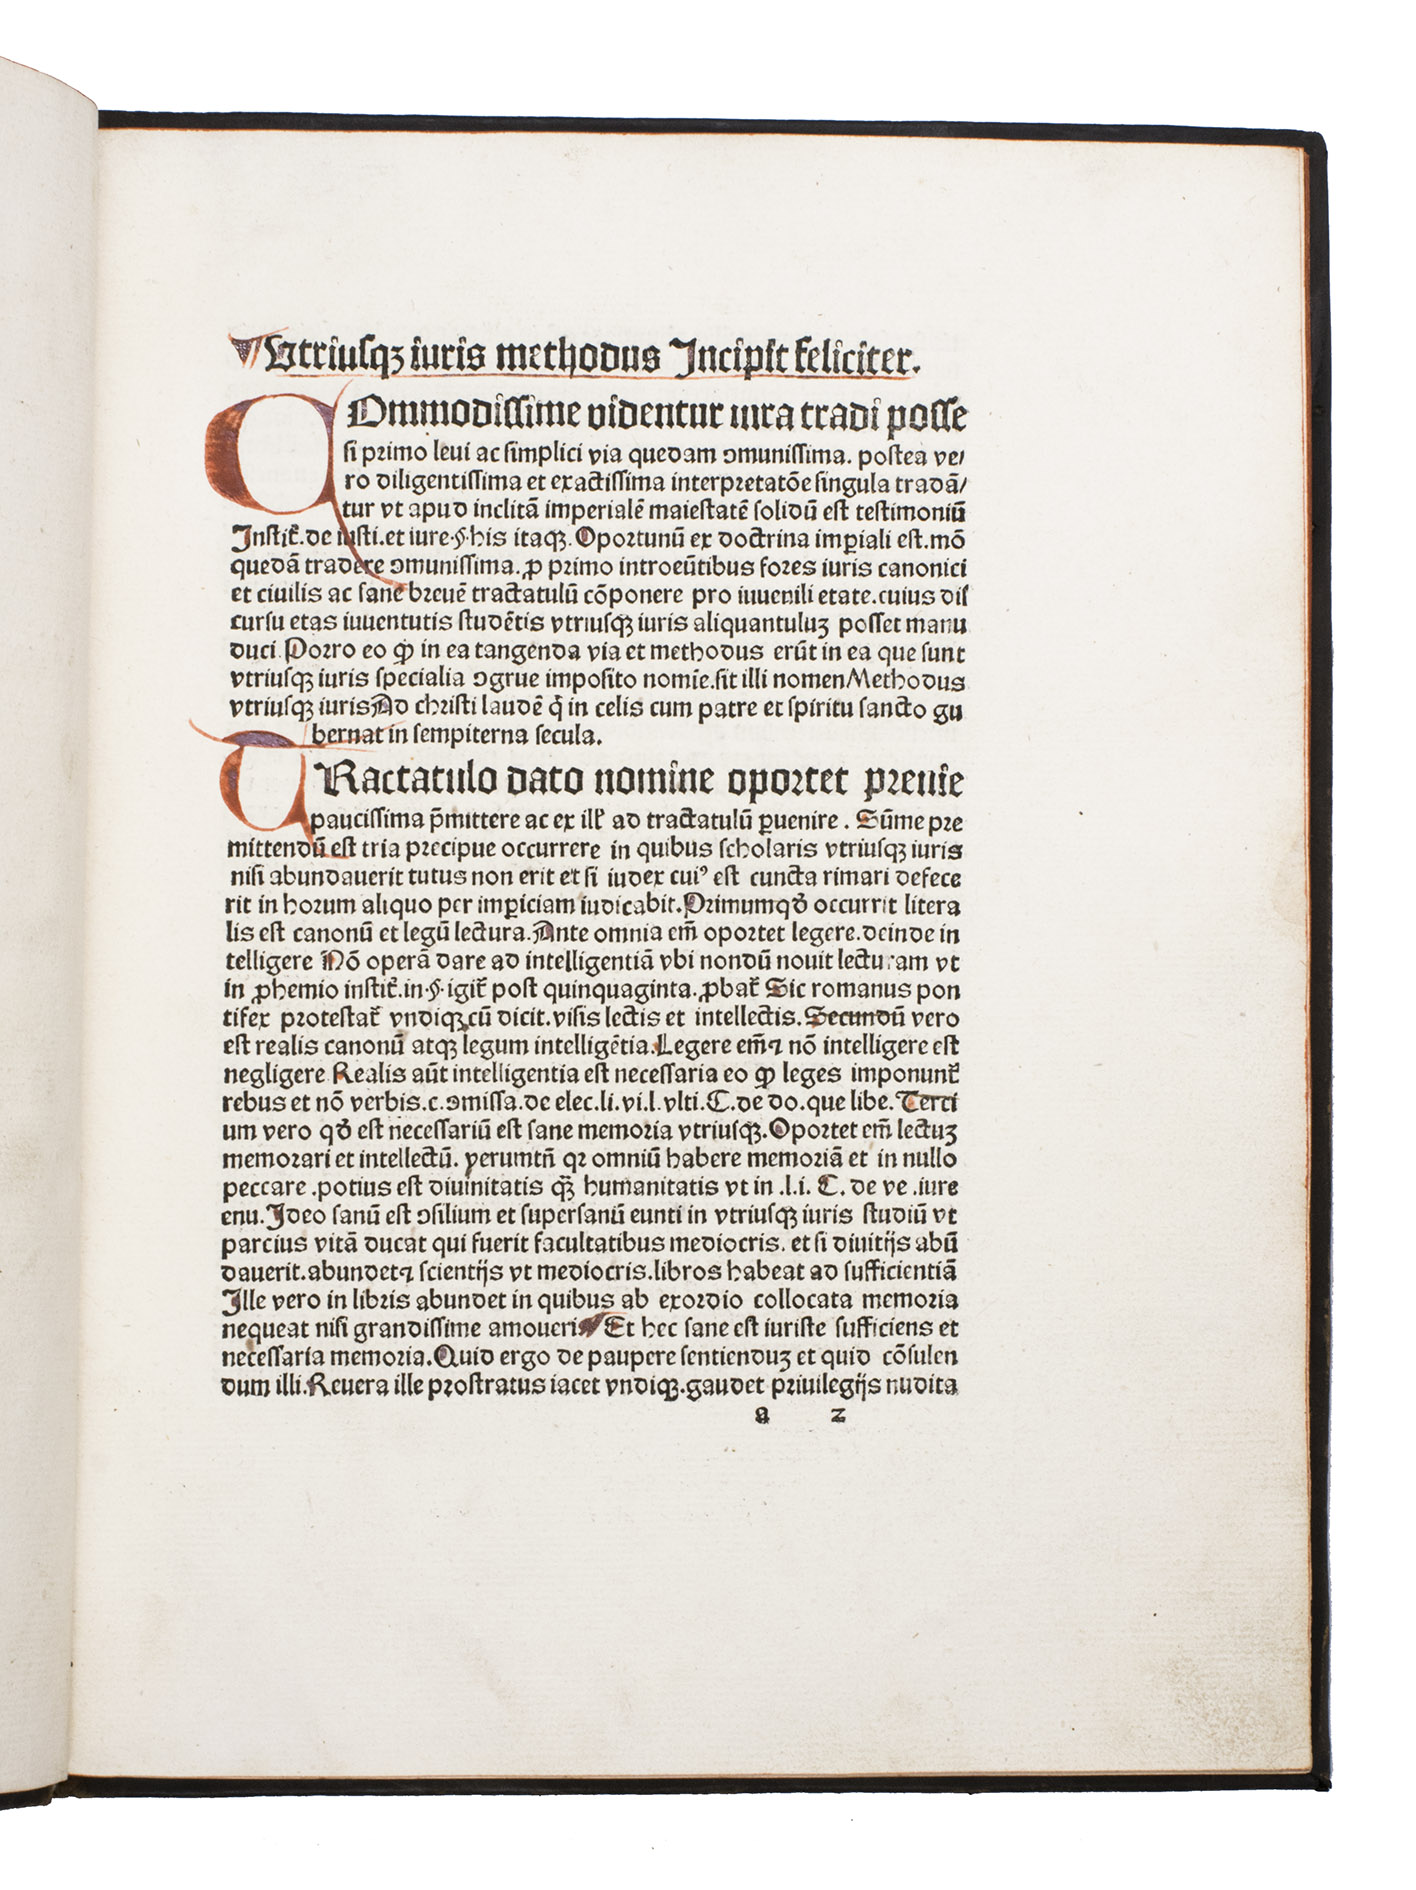 ¶ Utriusqꝫ iuris methodus Incipit feliciter.
COmmodissime videntur iura tradi posse
si primo leui ac simplici via quedam ꝯmunissima. postea ve/
ro diligentissima et exactissima interpretatōe singula tradā/
tur vt apud inclitā imperialē maiestatē solidū est testimoniū
Instit̄.de iusti.et iure.§.his itaqꝫ. Oportunū ex doctrina imꝑiali est.mō
quedā tradere ꝯmunissima.ꝓ primo introeūtibus fores iuris canonici
et ciuilis ac sane breuē tractatulū cōponere pro iuuenili etate.cuius dis
cursu etas iuuentutis studētis vtriusqꝫ iuris aliquantuluꝫ posset manu
duci.Porro eo ꝙ in ea tangenda via et methodus erūt in ea que sunt
vtriusqꝫ iuris specialia ꝯgrue imposito nomīe.sit illi nomen Methodus
vtriusqꝫ iuris Ad christi laudē q̄ in celis cum patre et spiritu sancto gu
bernat in sempiterna secula.
TRactatulo dato nomine oportet preuie
paucissima p̄mittere ac ex ill̄ ad tractatulū ꝑuenire. Sūme pre
mittendū est tria precipue occurrere in quibus scholaris vtriusqꝫ iuris
nisi abundauerit tutus non erit et si iudex cuiꝰ est cuncta rimari defece
rit in horum aliquo per imꝑiciam iudicabit.Primumqđ occurrit litera
lis est canonū et legū lectura.Ante omnia em̄ oportet legere.deinde in
telligere Nō operā dare ad intelligentiā vbi nondū nouit lecturam vt
in ꝓhemio instit̄.in.§.igit̄ post quinquaginta.ꝓbat̄ Sic romanus pon
tifex protestat̄ vndiqꝫ cū dicit.visis lectis et intellectis.Secundū vero
est realis canonū atqꝫ legum intelligētia.Legere em̄ ⁊ nō intelligere est
negligere Realis aūt intelligentia est necessaria eo ꝙ leges imponunt̄
rebus et nō verbis.c.ꝯmissa.de elec.li.vi.l.vlti.C.de do.que libe. Terci
um vero qđ est necessariū est sane memoria vtriusqꝫ.Oportet em̄ lectuꝫ
memorari et intellectū. verumtn̄ qꝛ omniū habere memoriā et in nullo
peccare .potius est diuinitatis qꝫ̄ humanitatis vt in .l.i. C. de ve .iure
enu.Ideo sanū est ꝯsilium et supersanū eunti in vtriusqꝫ iuris studiū vt
parcius vitā ducat qui fuerit facultatibus mediocris. et si diuitijs abū
dauerit.abundet⁊ scientijs vt mediocris.libros habeat ad sufficientiā
Ille vero in libris abundet in quibus ab exordio collocata memoria
nequeat nisi grandissime amoueri ¶ Et hec sane est iuriste sufficiens et
necessaria memoria.Quid ergo de paupere sentienduꝫ et quid cōsulen
dum illi.Reuera ille prostratus iacet vndiqꝫ.gaudet priuilegijs nudita
a 2